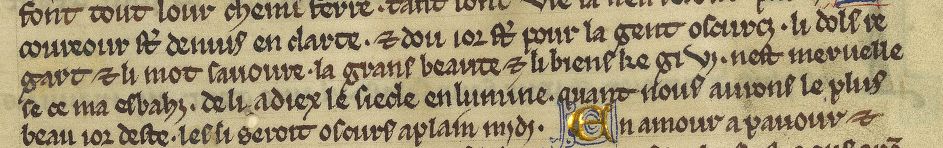 font tout lour chemi ferre · tant sont
coureour st̃ deuus en clarte · ⁊ dou ior st̃ pour la gent oscurci · li dols re
gart ⁊ li mot sauoure · la grans beaute ⁊ li biens ke gi vi · nest meruelle
se ce ma esbahi · de li a diex le siecle enlumine · quant nous aurons le plus
beau ior deste · les li seroit oscurs a plain midi · En amour a paour ⁊